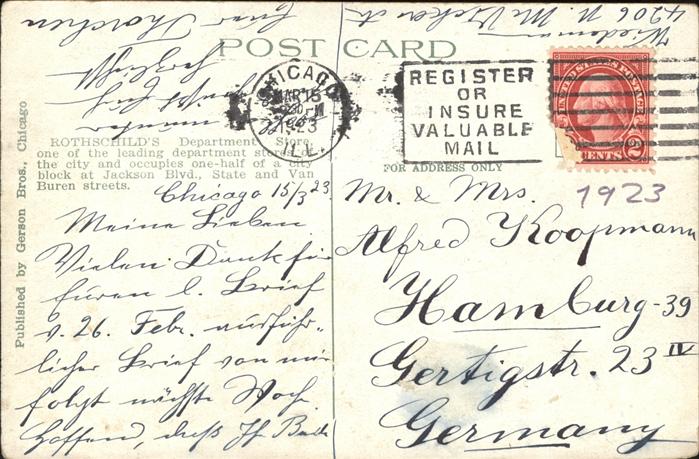 POST CARD
CHICAGO
MAR 15
1923
ILL.
REGISTER
OR
INSURE
VALUABLE
MAIL
UNITED STATES POSTAGE
2 CENTS 2
ROTHSCHILD'S Department Store,
one of the leading department stores of
the city and occupies one-half of a city
block at Jackson Blvd., State and Van
Buren streets.
FOR ADDRESS ONLY
Published by Gerson Bros., Chicago
Chicago 15/3 23.
Meine Lieben
Vielen Dank für
Euren l. Brief
v. 26. Febr. ausführ-
licher Brief von mir
folgt nächste Woch
Hoffend, daß Ihr Beide
munter
herzlichst
Euer Thorchen
Wiedeman
4206 N.
Mr. & Mrs.
1923
Alfred Koopmann
Hamburg-39
Gertigstr. 23 IV
Germany